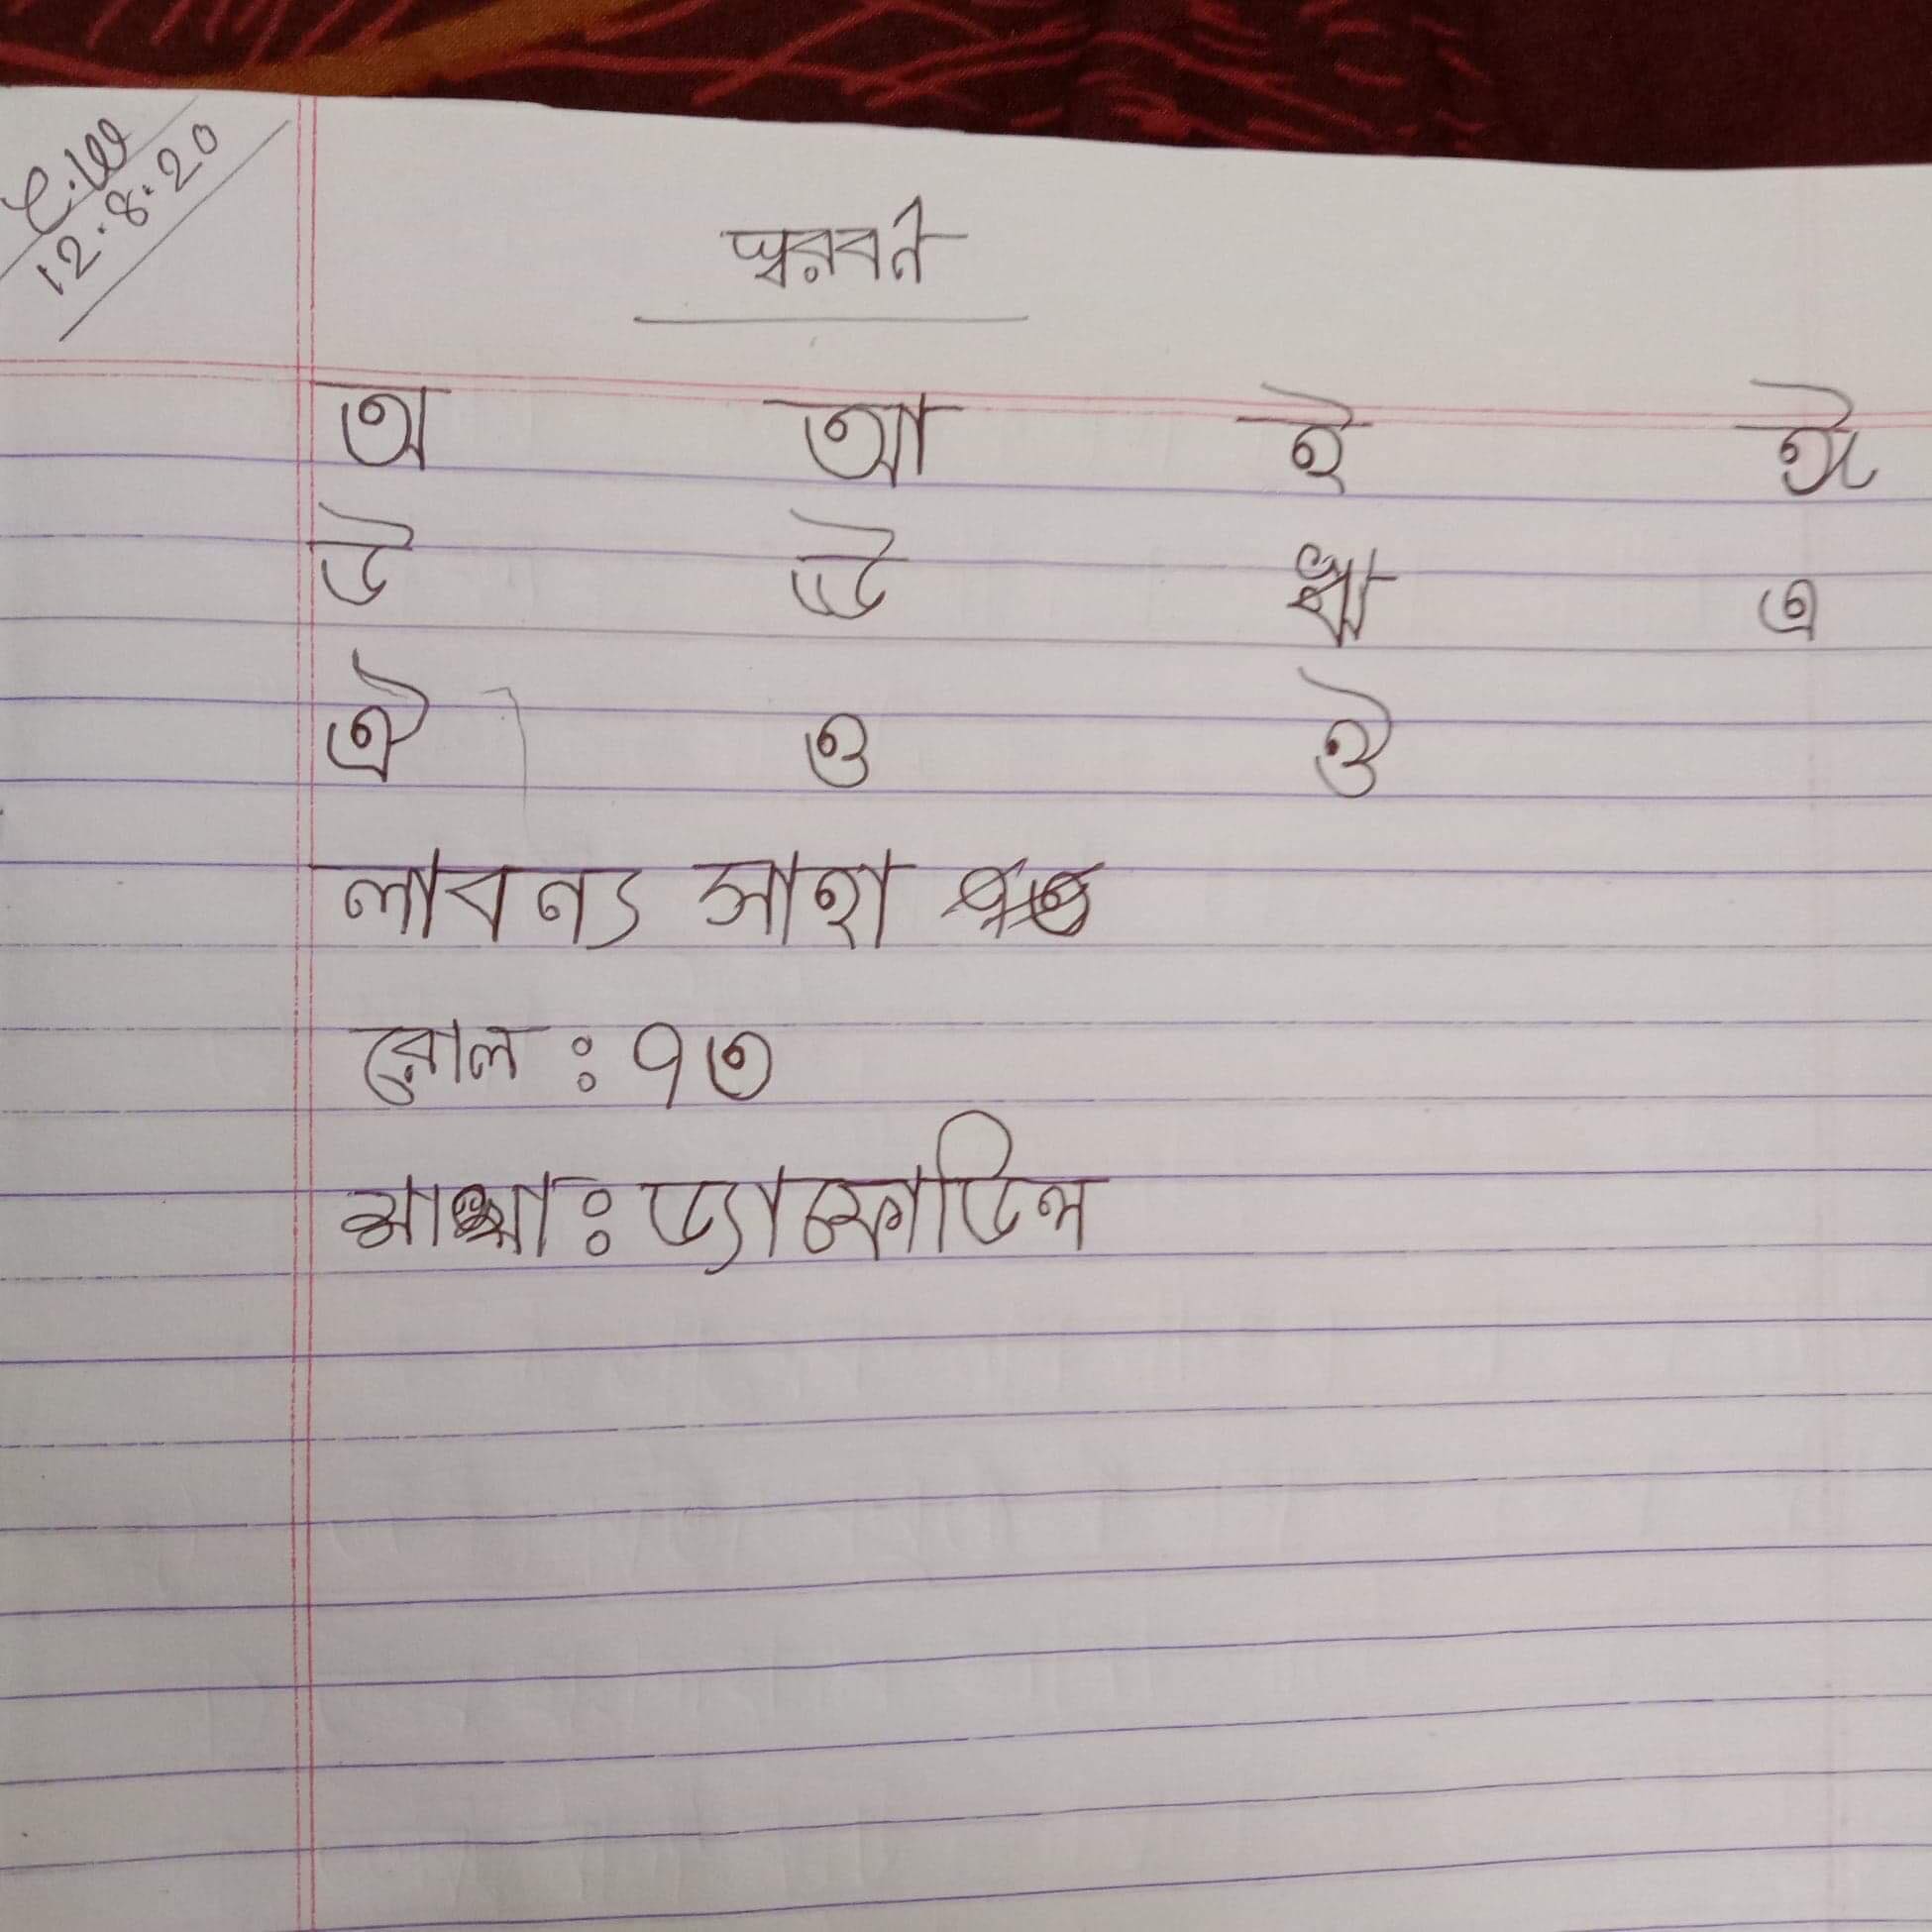 C.W
12.8.20
স্বরবর্ন
অ আ ই ঈ
উ ঊ ঋ এ
ঐ ও ঔ
লাবন্য সাহা
রোল : ৭৩
শাখা : ড্যাফোডিল